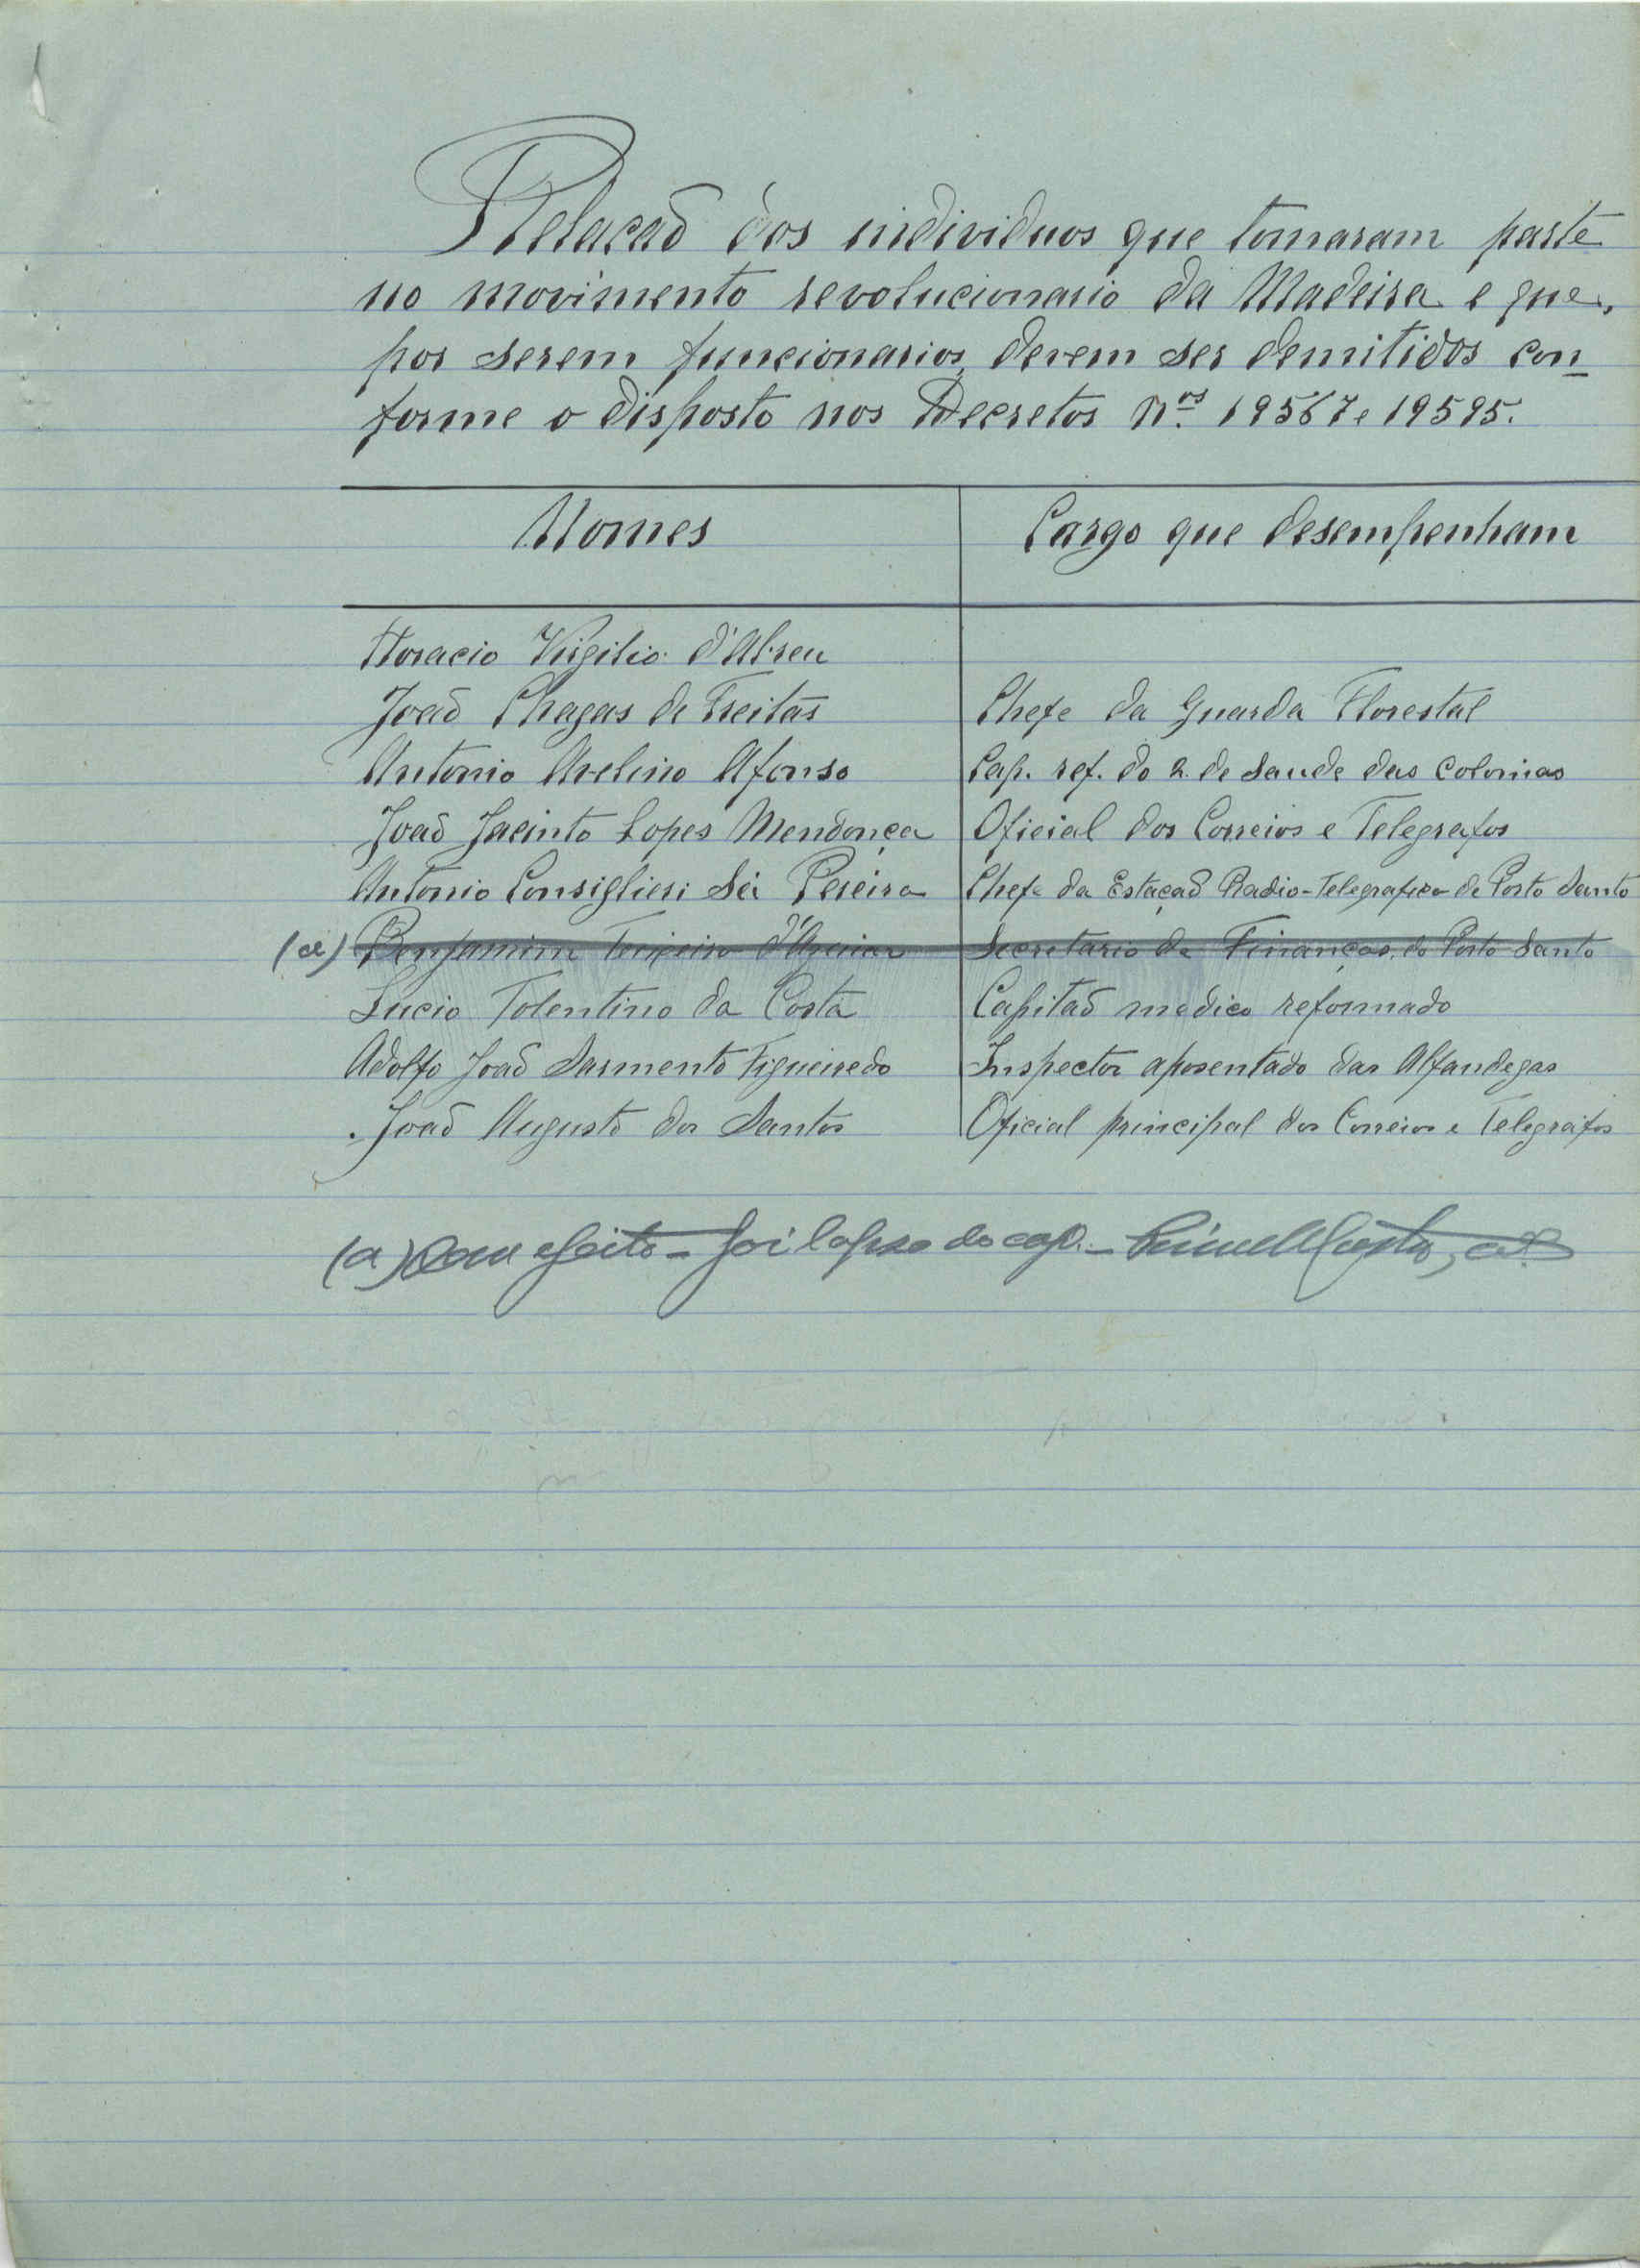 Relação dos individuos que tomaram parte
no movimento revolucionario da Madeira e que,
por serem funcionarios, devem ser demitidos con
forme o disposto nos Decretos N.os 19567 e 19595.
Nomes Cargo que desempenham
Horacio Virgilio d'Abreu
João Chagas de Freitas Chefe da Guarda Florestal
Antonio Avelino Afonso Cap. ref. do Q. de Saude das Colonias
João Jacinto Lopes Mendonça Oficial dos Correios e Telegrafos
Antonio Consiglieri Sá Pereira Chefe da Estação Radio-Telegrafica de Porto Santo
(a) Benjamim Teixeira d'Aguiar Secretario de Finanças do Porto Santo
Lucio Tolentino da Costa Capitão medico reformado
Adolfo João Sarmento Figueiredo Inspector aposentado das Alfandegas
João Augusto dos Santos Oficial principal dos Correios e Telegrafos
(a) Sem efeito - foi lapso de cop. -